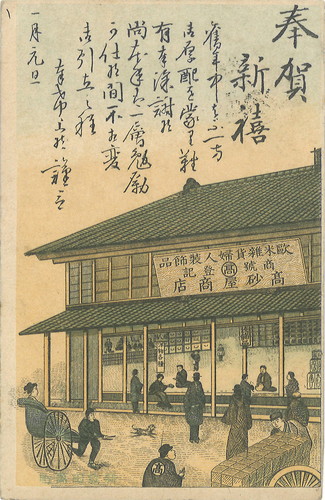 奉賀
新禧
舊年中は不一方
御厚配を蒙り難
有奉深謝候
尚本年も一層勉励
可仕候間不相変
御引立之程
奉希上候 謹言
一月元旦
歐米雜貨婦人製飾品
商號登記
高
高砂屋商店
高